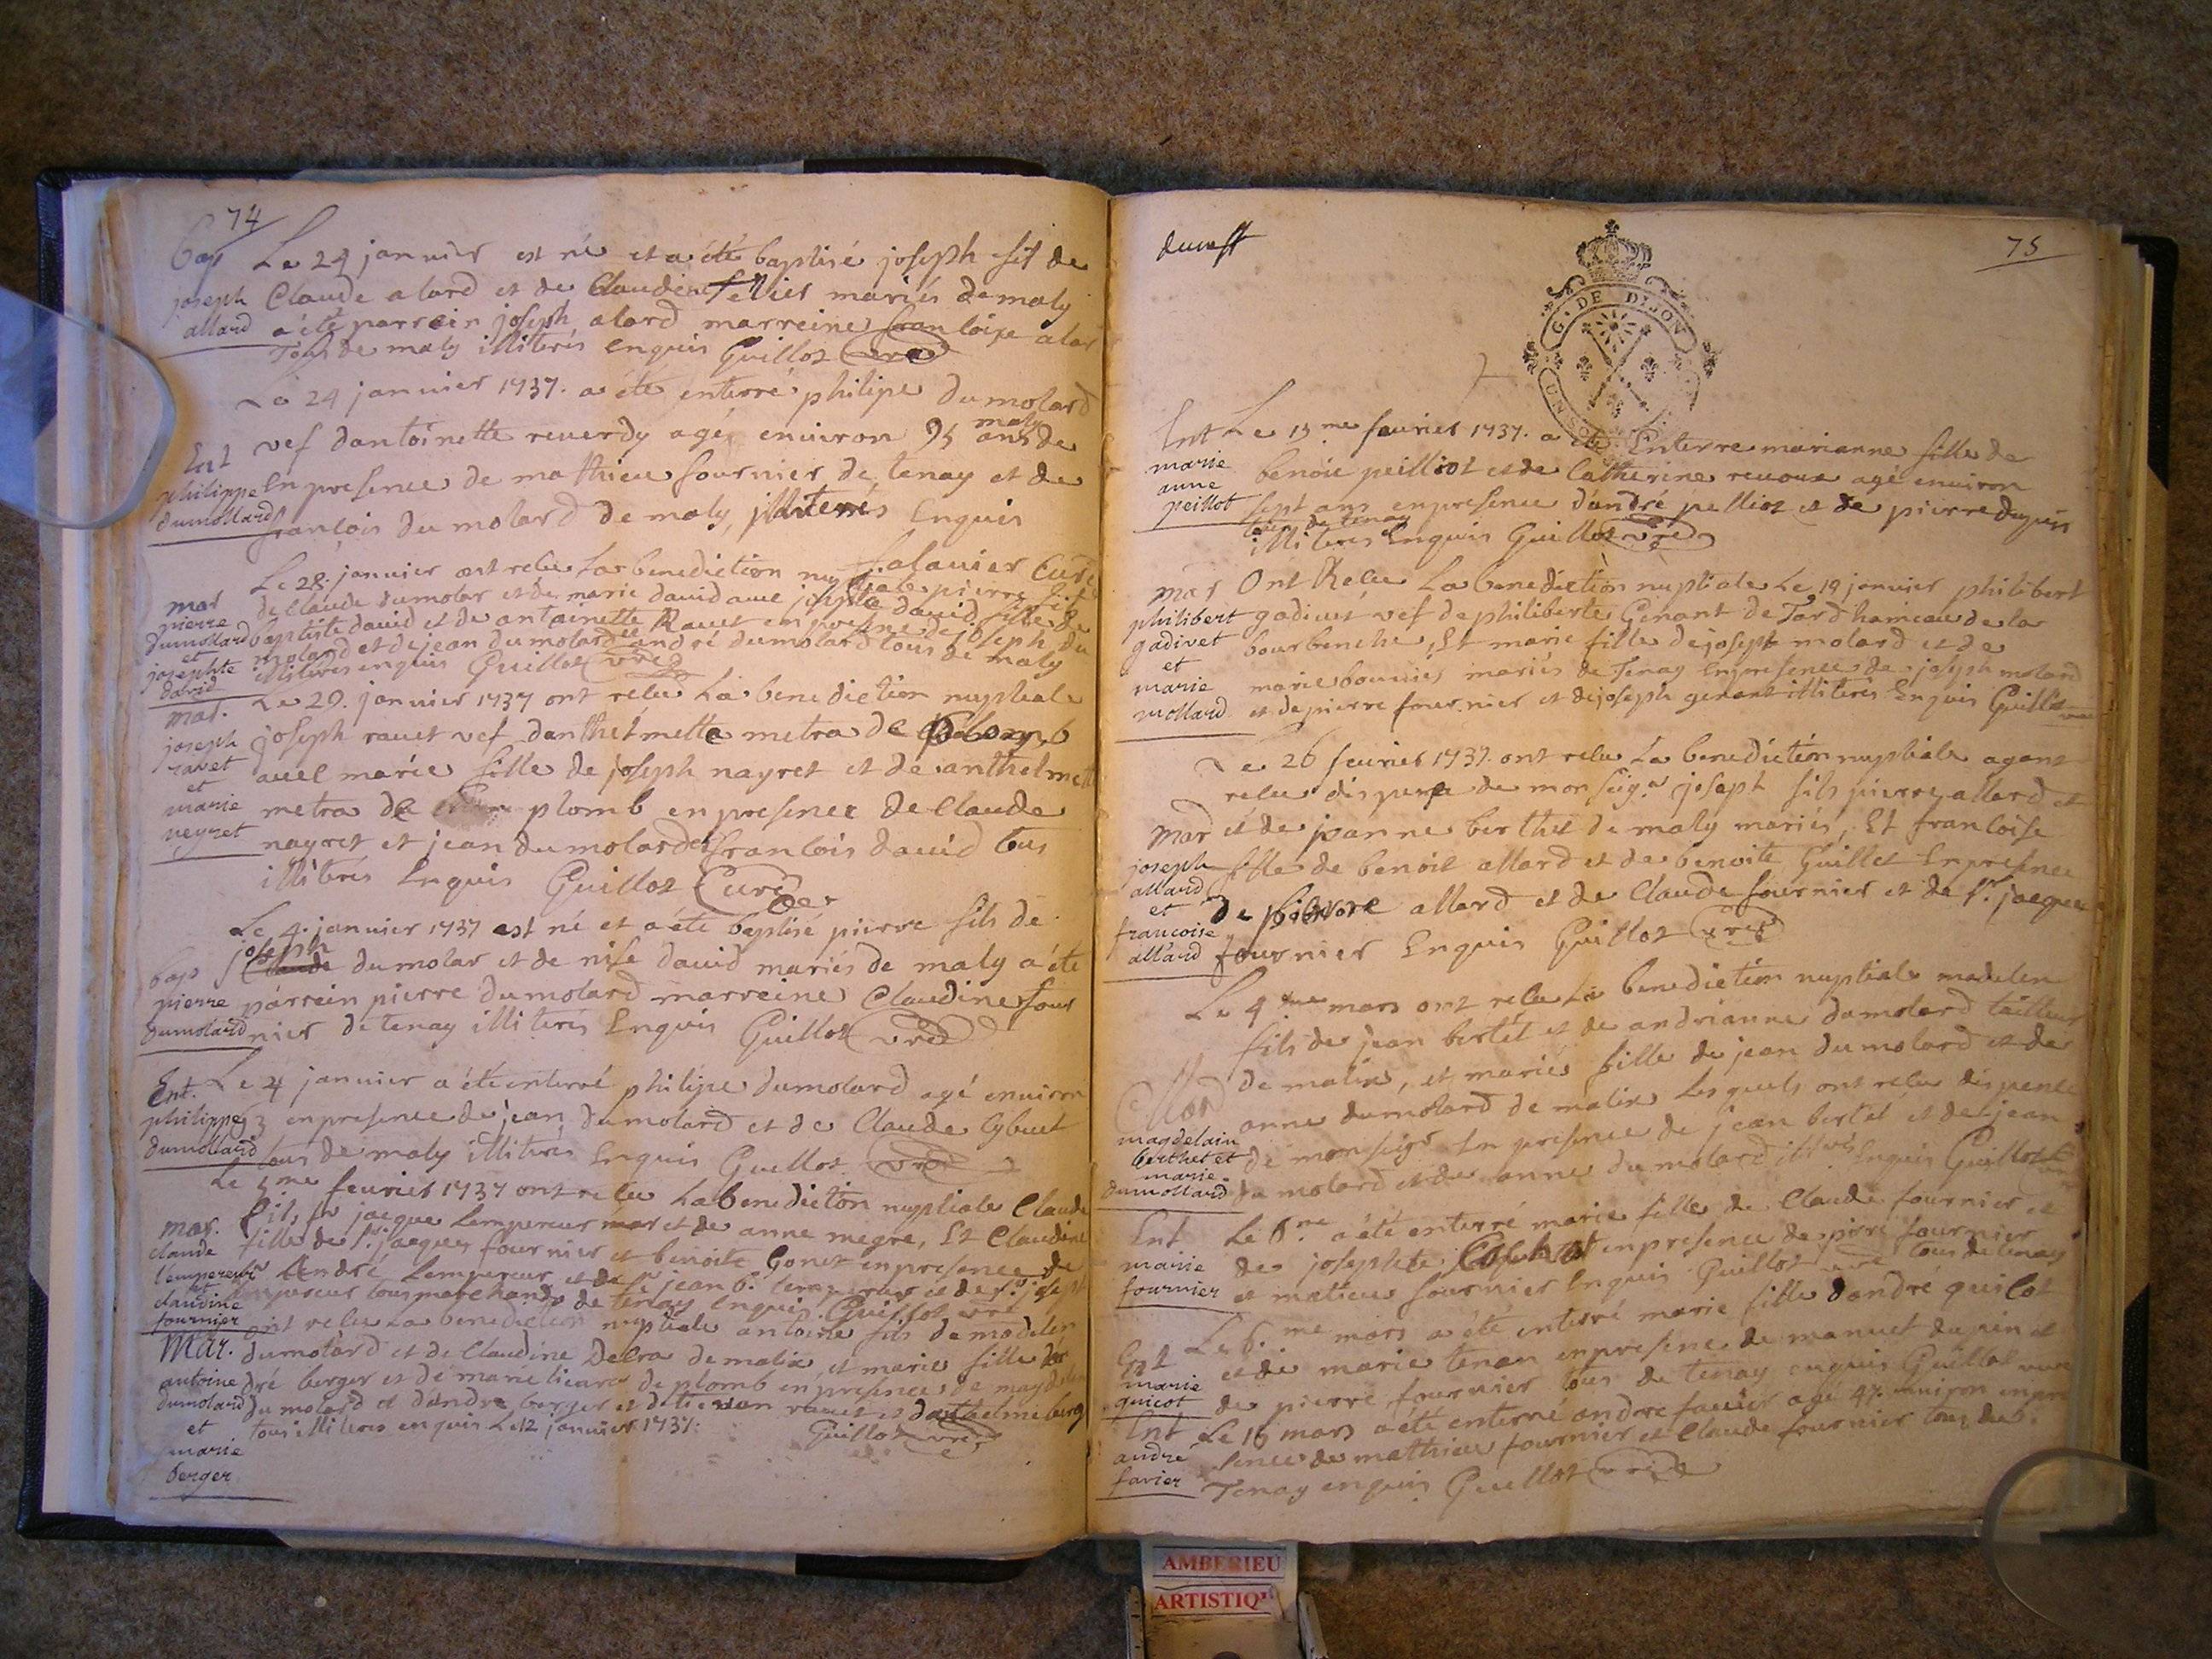 74
Bap Le 24 janvier est né et a été baptisé joseph fil de
joseph Claude alard et de Claudine mariés de maly
allard a été parrein joseph alard marreine francoise alar
tous de maly illiterés Enquis Guillot curé
Le 24 janvier 1737. a été enterré philipe dumolard
Ent vef dantoinette reverdy agé environ 95 ans de maly
philippe En presence de mathieu fournier de tenay et de
dumollard francois du molard de maly, illiterés Enquis
falavier Curé
mar Le 28. janvier ont recu La benediction nuptiale pierre fils
pierre de Claude dumolar et de marie david avec josepte david fille de
dumollard baptiste david et de antoinette Ravet en presence de joseph du
et molard et de jean dumolard et andré dumolard tous de maly
josephte illiterés enquis Guillot curé
david
mar. Le 29. janvier 1737 ont recu La benediction nuptiale
joseph joseph ravet vef danthelmette metra de plomb
ravet
et avec marie fille de joseph nayret et de anthelmett
marie metra de plomb en presence de Claude
neyret nayret et jean dumolard et francois david tous
illiterés Enquis Guillot Curé
Le 4. janvier 1737 est né et a été baptisé pierre fils de
bap joseph dumolar et de nise david mariés de maly a été
pierre parrein pierre dumolard marreine Claudine four
dumolard nier de tenay illiterés Enquis Guillot curé
Ent. Le 4 janvier a été enterré philipe dumolard agé environ
philippe 63 en presence de jean dumolard et de Claude
dumollard tous de maly illiterés Enquis Guillot curé
Le 5me fevrier 1737 ont recu La benediction nuptiale Claude
mar. fils sr jacque Lempereur et de anne megre, Et Claudine
claude fille de sr. jacques fournier et benoite Gonet en presence de
l'empereur André Lempereur et de sr jean b. lempereur et de sr. joseph
et Lempereur tous marchands de tenay Enquis Guillot curé
claudine
fournier
Mar. ont recu La benediction nuptiale antoine fils de madelen
dumolard et de Claudine Delra de malix, et marie fille dan
antoine dré berger et de marie de plomb en presence de magdelen
dumolard du molard et dandre berger et detienan ravet et danthelme berg
et tous illiteres enquis Le 12 janvier 1737. Guillot curé
marie
berger
75
G. DE DIJON
UN SOL
Ent Le 15me fevrier 1737. a été Enterre marianne fille de
marie benoit peilliot et de Catherine revoux agé environ
anne
peillot sept ans en presence d'andré pelliot et de pierre dupuis
tous de tenay
illiteres Enquis Guillot curé
mar Ont Recu La benediction nuptiale Le 19 janvier philibert
philibert gadivet vef de philiberte Genant de Tard hameau de la
gadivet bourbenche, Et marie fille de joseph molard et de
et
marie marie bouvier mariés de Tenay En presence de joseph molard
mollard et de pierre fournier et de joseph genant illiterés Enquis Guillot
Le 26 fevrier 1737. ont recu La benediction nuptiale ayant
recu dispense de monseigr joseph fils pierre allard et
mar et de jeanne berthet de maly mariés, Et francoise
joseph fille de benoit allard et de benoite Guillet En presence
allard
et de pierre allard et de Claude fournier et de sr. jacque
francoise
allard fournier Enquis Guillot curé
Le 4me mars ont recu La benediction nuptiale madelen
fils de jean bertet et de andrianne dumolard tailleur
Mar de malix, et marie fille de jean dumolard et de
anne dumolard de malix Lesquels ont recu dispence
magdelain
berthet et de monseigr En presence de jean bertet et de jean
marie
dumollard du molard et de anne du molard illiterés Enquis Guillot
Ent Le 6me a été enterré marie fille de Claude fournier et
marie de josephte en presence de piere fournier
fournier et matieu fournier Enquis Guillot curé tous de tenay
Ent Le 6.me mars a été enterré marie fille dandré guicot
marie et de marie tenan en presence de manuet dupin et
guicot de pierre fournier tous de tenay enquis Guillot curé
Ent Le 16 mars a été enterré andre favier agé 47. environ en pre
andré sence de mathieu fournier et Claude fournier tous de
favier Tenay enquis Guillot curé
AMBERIEU
ARTISTIQ